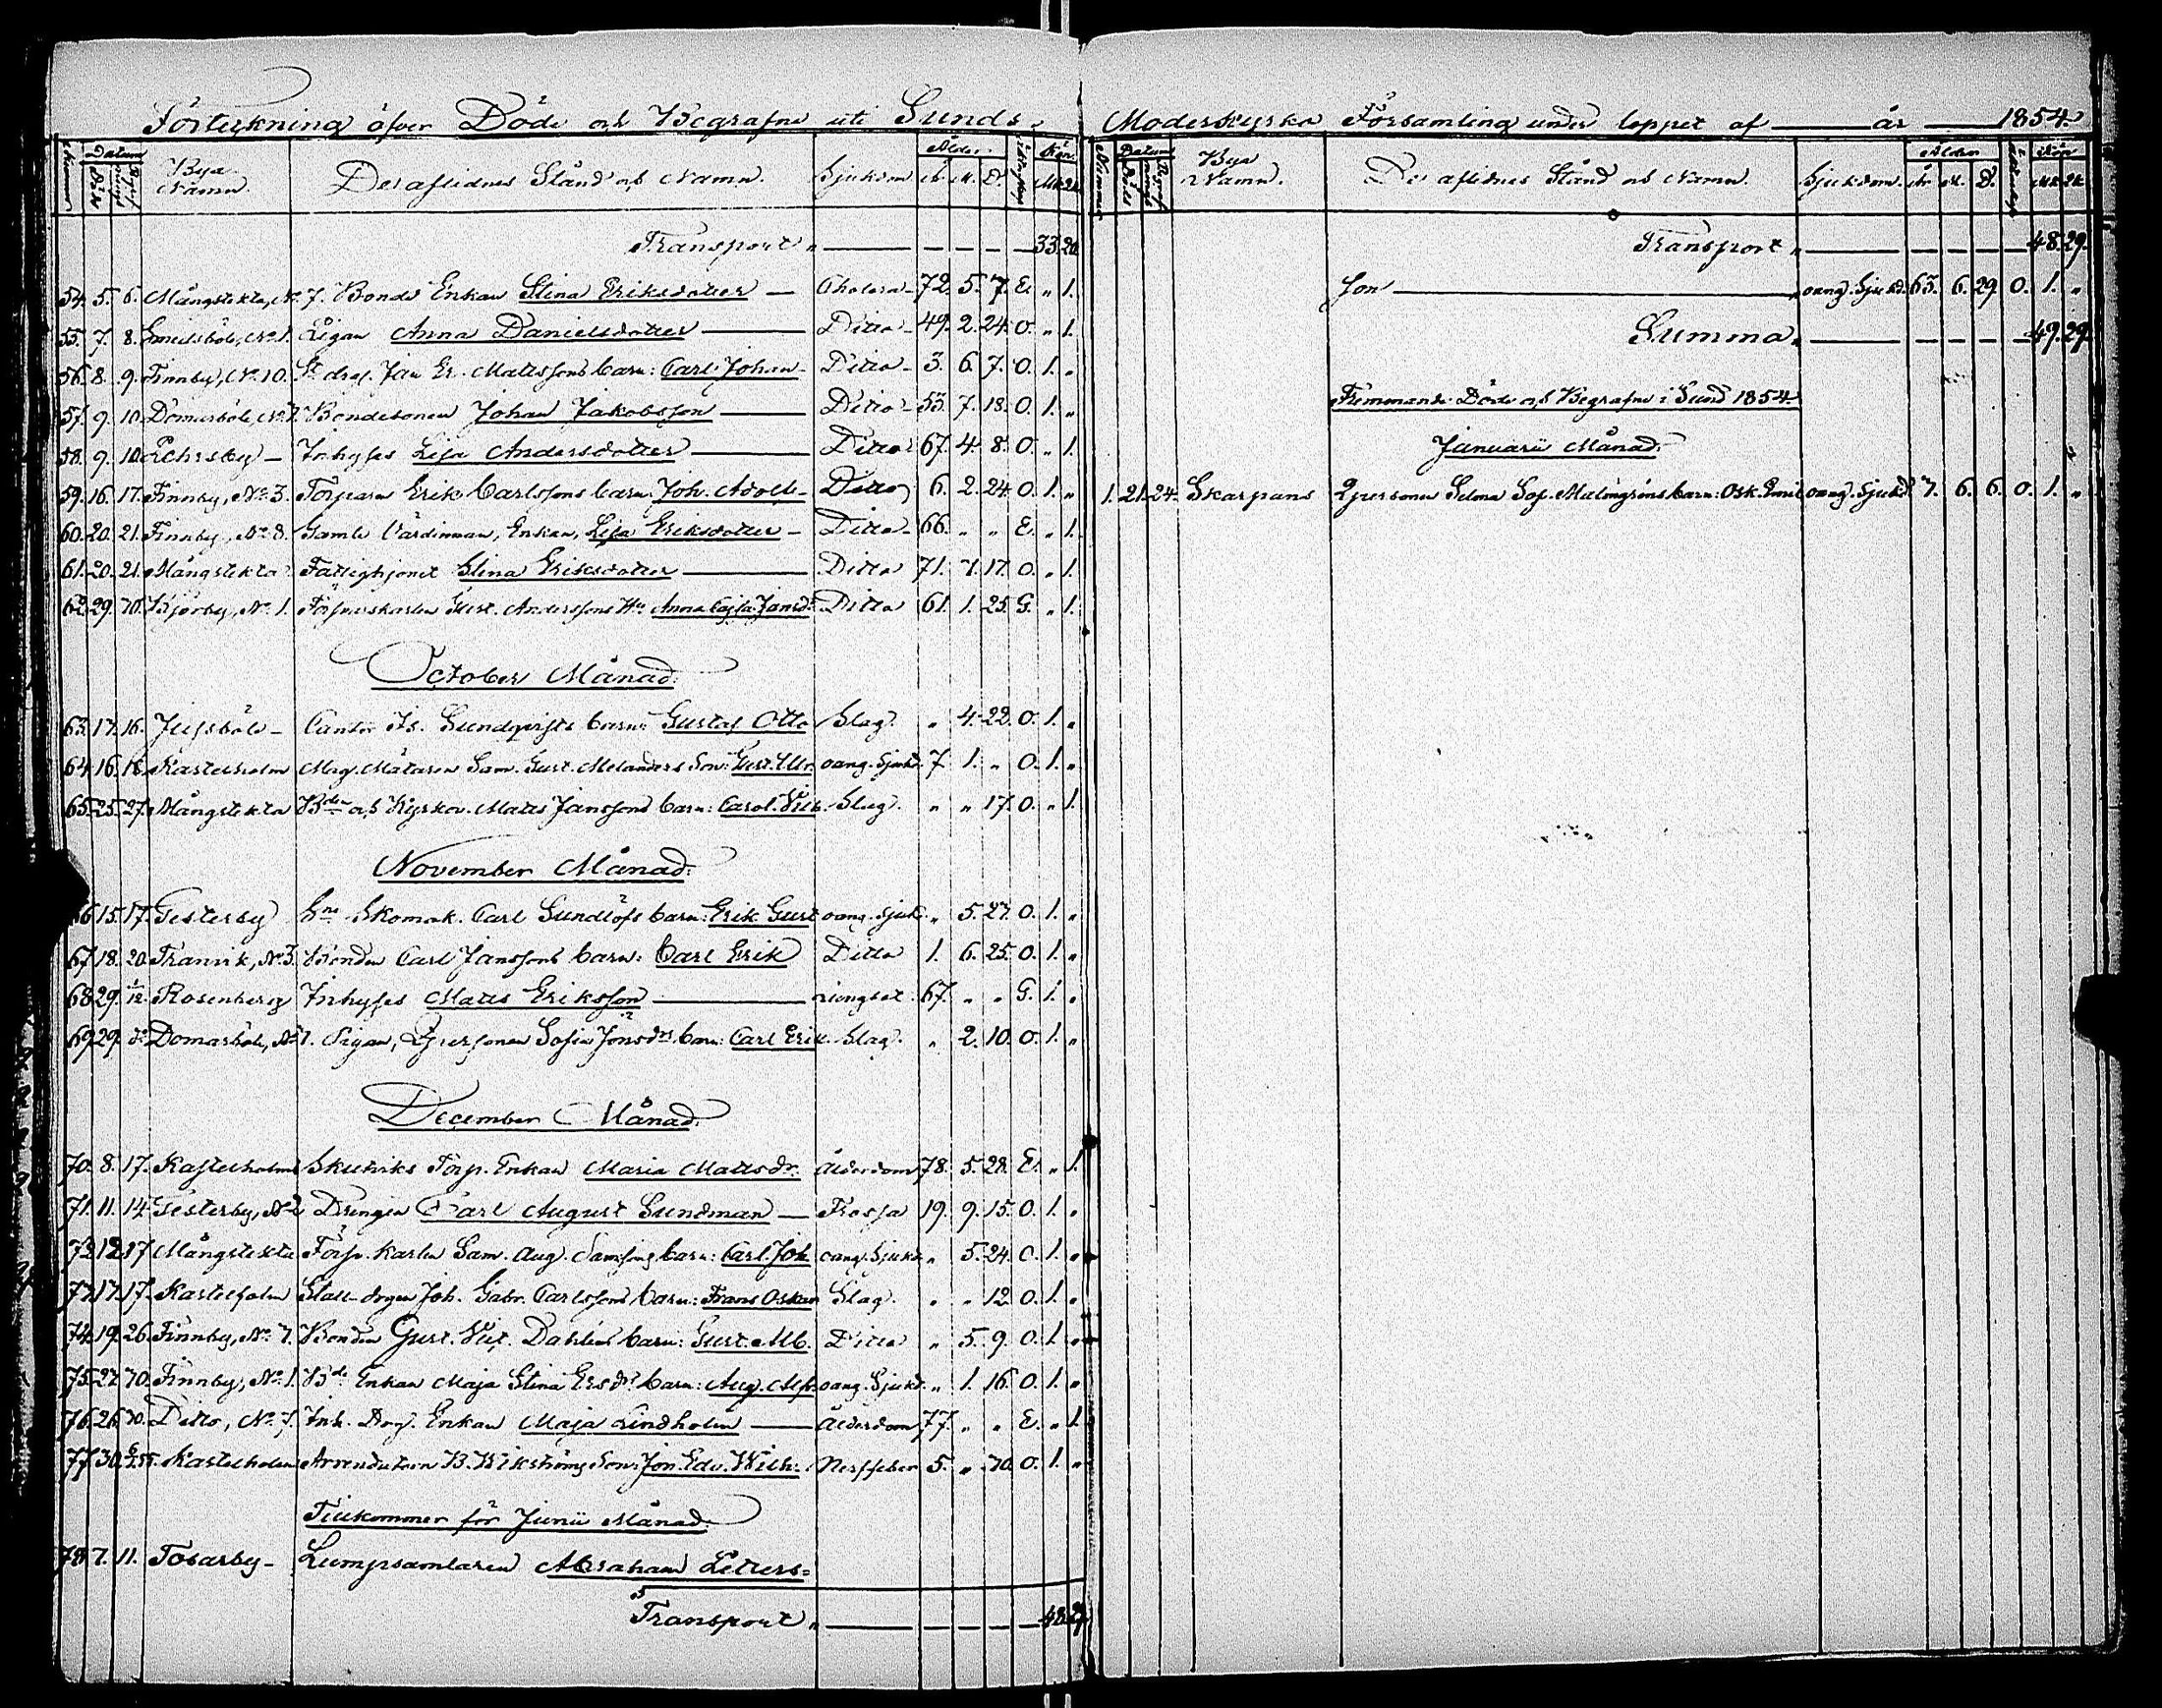 Förteckning öfver Döde och Begrafne uti Sunds
Nummer Datum Döde Begrafningd. Bya Namn. De aflidnes Stånd och Namn. Sjukdom Ålder År M. D. Kön. Mk. Qk.
Transport „ 33. 20.
54. 5. 6. Mångstekta, N. 7. Bonde Enkan Stina Eriksdotter Cholera 72. 5. 7. E. „ 1.
55. 7. 8. Smedsböle, No 1. Pigan Anna Danielsdotter Ditto 49. 2. 24. O. „ 1.
56. 8. 9. Finnby, No 10. Jan Er. Mattssons barn: Carl Johan Ditto 3. 6. 7. O. 1. „
57. 9. 10. Domarböle, No 7. Bondesonen Johan Jakobsson Ditto 53. 7. 18. O. 1. „
58. 9. 10. Inhyses Lisa Andersdotter Ditto 67. 4. 8. O. „ 1.
59. 16. 17. Finnby, No 3. Torparen Erik Carlssons barn: Joh. Adolf Ditto 6. 2. 24. O. 1. „
60. 20. 21. Finnby, No 8. Gamla Värdinnan, Enkan, Lisa Eriksdotter Ditto 66. „ „ E. „ 1.
61. 20. 21. Mångstekta Fattighjonet Stina Eriksdotter Ditto 71. 7. 17. O. „ 1.
62. 29. 30. Björby, No 1. Gust. Anderssons Hu Anna Cajsa Jansdr Ditto 61. 1. 25. G. „ 1.
October Månad.
63. 17. 16. Jussböle Cantor Is. Sundqvists barn: Gustaf Otto Slag. „ 4. 22. O. 1. „
64. 16. 18. Kastelholm Mag. Mätaren Sam. Gust. Melanders Son: Gust. oang. Sjukd. 7. 1. „ O. 1. „
65. 25. 27. Mångstekta Bden och Kyrkov. Matts Janssons barn: Carol. Vilh. Slag. „ „ 17. O. „ 1.
November Månad.
66. 15. 17. Gesterby Sns Skomak. Carl Sundlöfs barn: Erik Gust oang. sjuk. „ 5. 27. O. 1. „
67. 18. 20. Tranvik, No 3. Bonden Carl Janssons barn: Carl Erik Ditto 1. 6. 25. O. 1. „
68. 29. 3/12. Rosenberg Inhyses Matts Eriksson Lungsot. 67. „ „ G. 1. „
69. 29. do Domarböle, No 7. Pigan, Qpersonen Sofia Jonsdrs barn: Carl Erik. Slag. „ 2. 10. O. 1. „
December Månad.
70. 8. 17. Kastelholms Skutviks Torp. Enkan Maria Mattsdr. Ålderdom 78. 5. 28. E. „ 1.
71. 11. 14. Gesterby, No 2 Drengen Carl August Sundman Frossa 19. 9. 15. O. 1. „
72. 12. 17. Mångstekta Torp. karlen Sam. Aug. Samssons barn: Carl Joh. oang. Sjukd. „ 5. 24. O. 1. „
73. 17. 17. Kastelholm Stall-drgen Joh. Gabr. Carlssons barn: Frans Oskar Slag. „ „ 12. O. 1. „
74. 19. 26. Finnby, No 7. Bonden Gust. Vilh. Dahléns barn: Gust. Alb. Ditto „ 5. 9. O. 1. „
75. 27. 30. Finnby, No 1. Bde Enkan Maja Stina Ersdrs barn: Aug. Alfr. oang. Sjukd. „ 1. 16. O. 1. „
76. 26. 30. Ditto, No 7. Inh. Drg. Enkan Maja Lindholm Ålderdom 77. „ „ E. „ 1.
77. 30. 6/1 55. Kastelholm Arrendatorn B. Wikströms Son: Jon. Edv. Wilh. Nerffeber 5. „ 30. O. 1. „
Tillkommer för Junii Månad.
78. 7. 11. Tosarby Lumpsamlaren Abraham Petters-
Transport „ 48. 29.
Moderkyrko Församling under loppet af år 1854.
Nummer Datum Döde Begrafningd. Bya Namn. De aflidnes Stånd och Namn. Sjukdom. Ålder År M. D. Kön Mk. Qk.
Transport „ 48. 29.
son oang. Sjukd. 63. 6. 29. O. 1. „
Summa „ 49. 29.
Främmande Döde och Begrafne i Sund 1854.
Januarii Månad.
1. 21. 24. Skarpans Qpersonen Selma Sof. Malmgréns barn: Osk. Emil oang. Sjukd. 7. 6. 6. O. 1. „